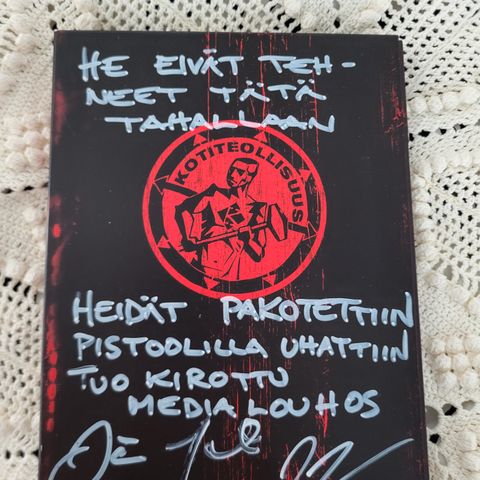 HE EIVÄT TEH-
NEET TÄTÄ
TAHALLAAN
KOTITEOLLISUUS
HEIDÄT PAKOTETTIIN
PISTOOLILLA UHATTIIN
TUO KIROTTU
MEDIA LOUHOS